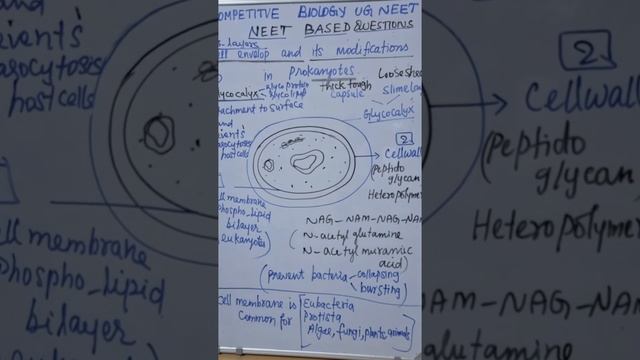 COMPETITVE BIOLOGY UG NEET
NEET BASED QUESTIONS
layers
envelop and its modifications
in Prokaryotes
glycoprotein
glycolipid
thick tough
capsule
Loose sheet
slime
Glycocalyx
attachment to surface
and
host cells
2
Cellwall
(Peptido
glycan
Heteropolymer
NAG-NAM-NAG-NAM
(N-acetyl glutamine
N-acetyl muramic
acid)
cell membrane
phospho-lipid
bilayer
eukaryotes)
(prevent bacteria collapsing
bursting)
Cell membrane is
Common for
Eubacteria
Protista
Algae, fungi, plants, animals
and
host cells
cell membrane
phospho-lipid
bilayer
2
Cellwall
(Peptido
glycan
Heteropolymer
NAM-NAG-NAM
glutamine